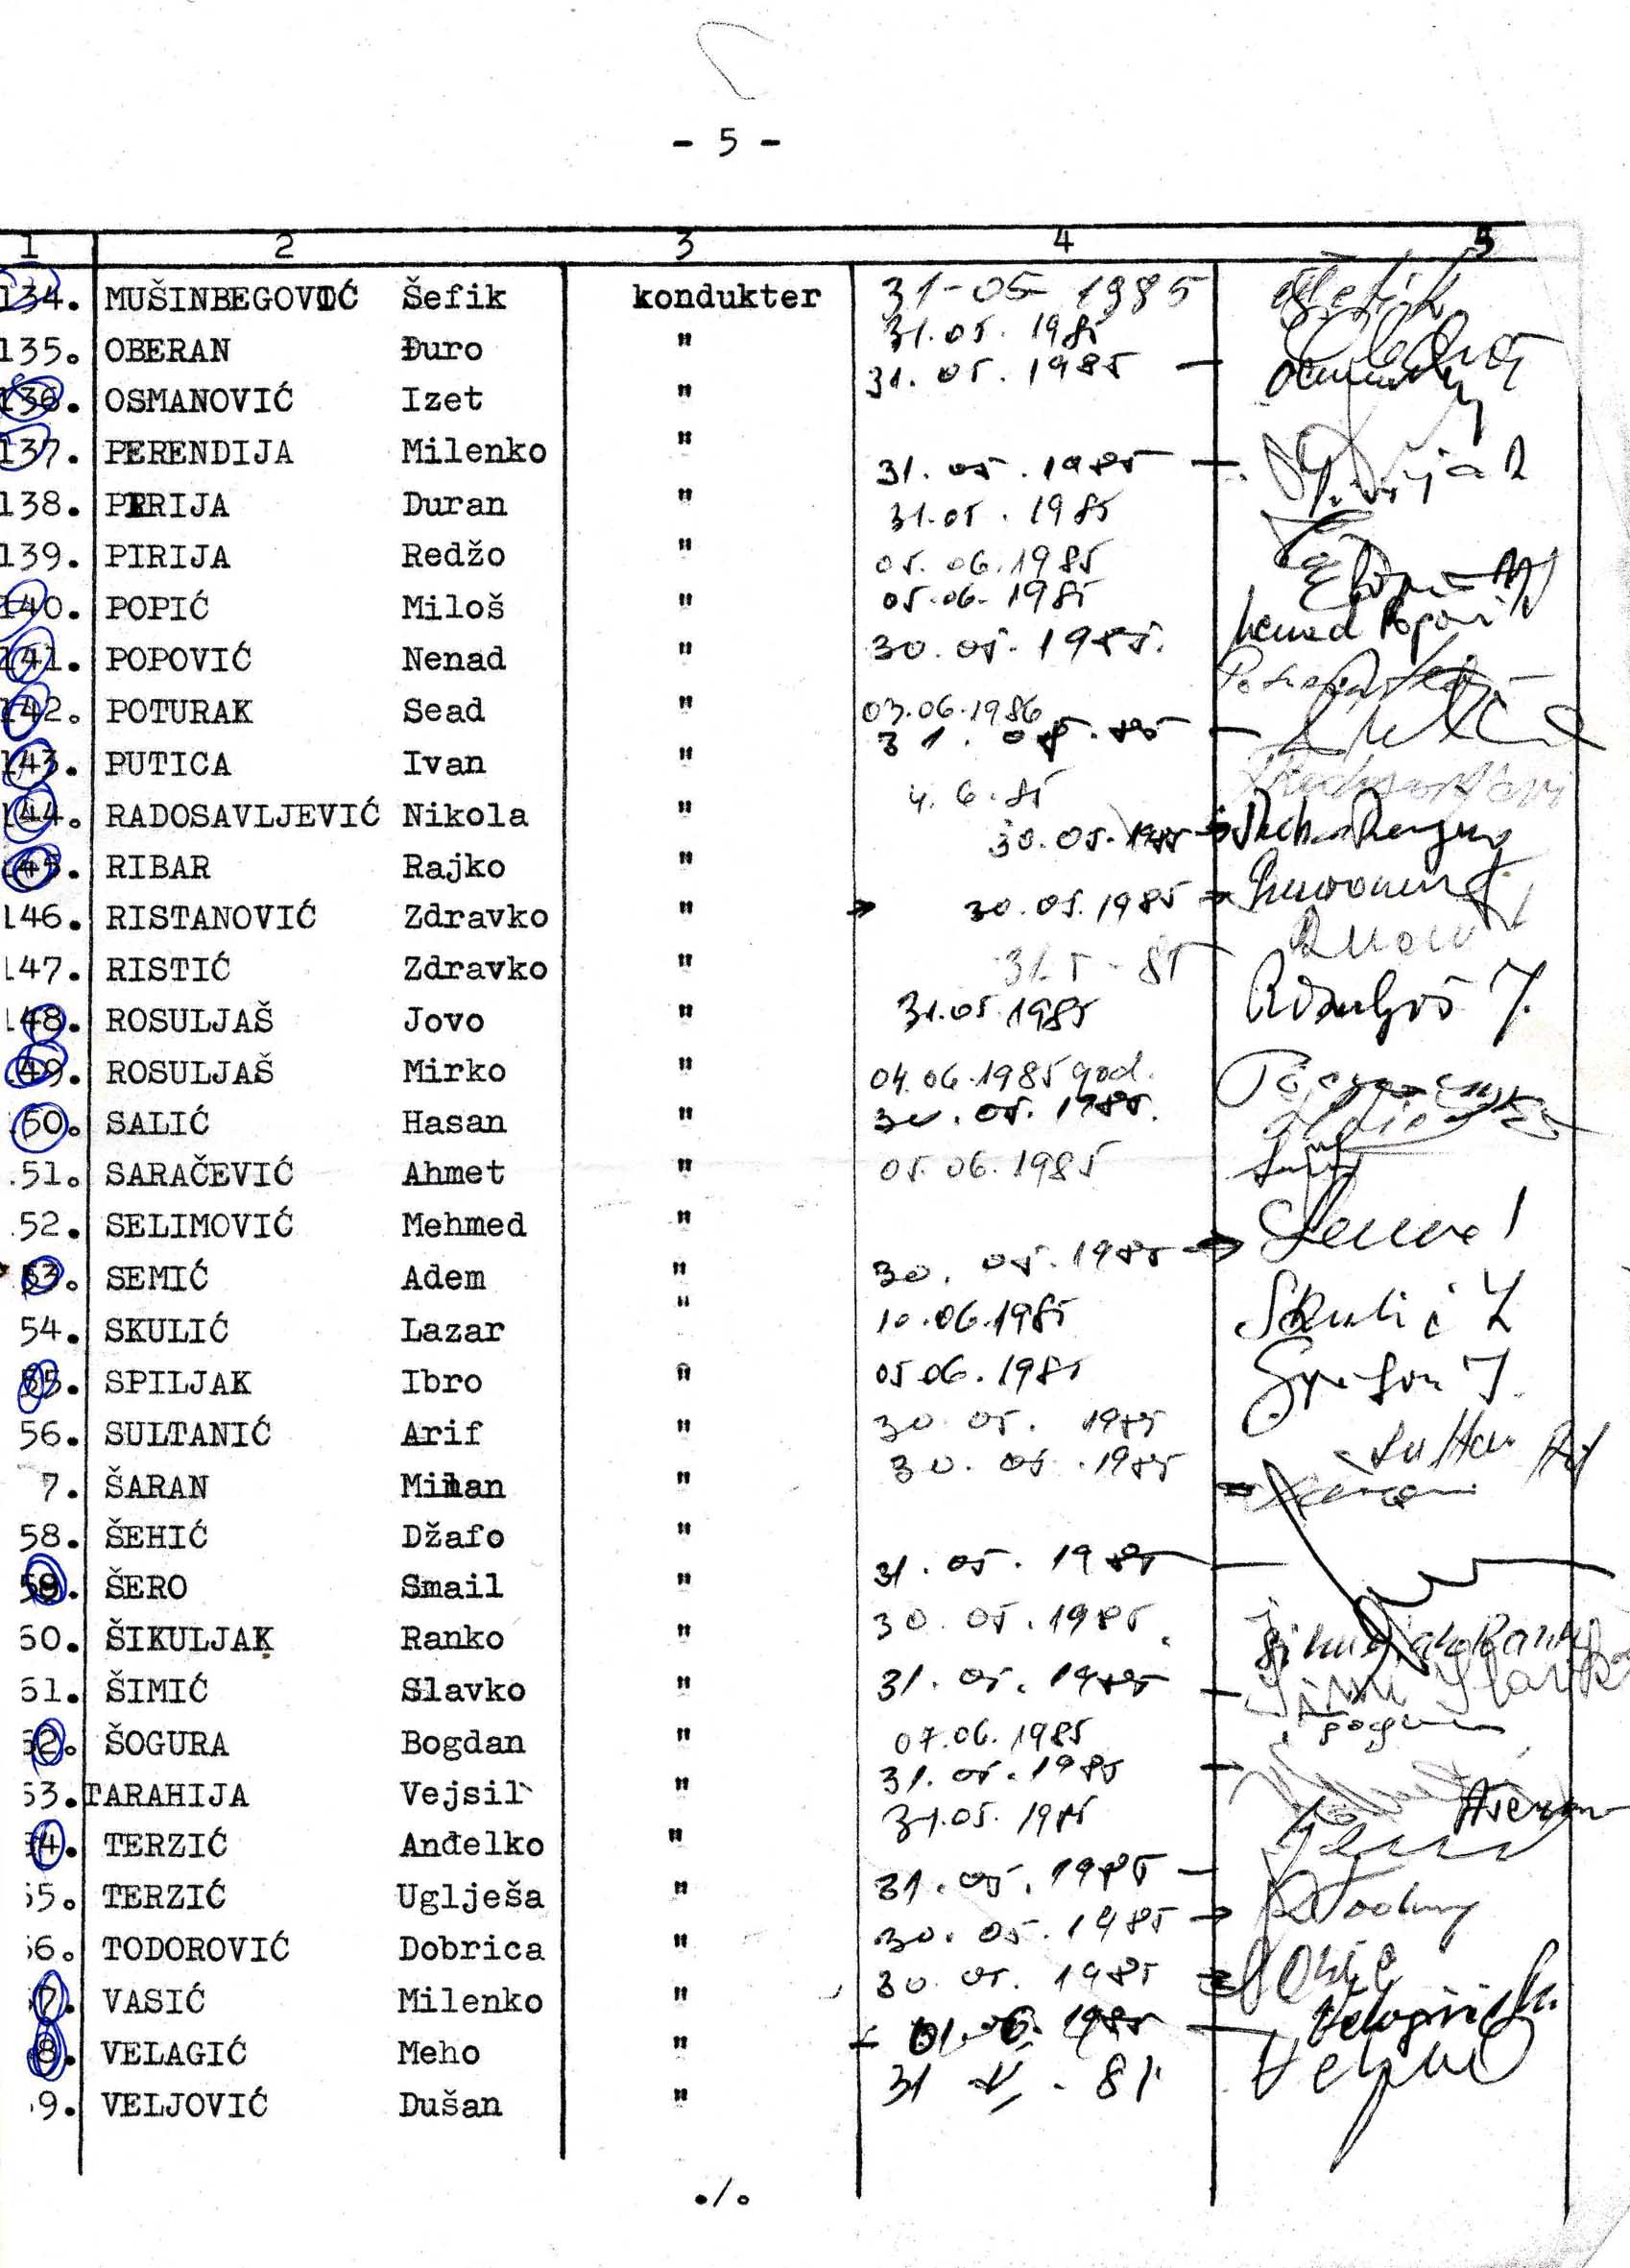 - 5 -
1 2 3 4 5
134. MUŠINBEGOVIĆ Šefik kondukter 31-05-1985 Šefik
135. OBERAN Đuro " 31.05.1985
136. OSMANOVIĆ Izet " 31.05.1985 -
137. PERENDIJA Milenko " 31.05.1985 -
138. PIRIJA Duran " 31.05.1985
139. PIRIJA Redžo " 05.06.1985
140. POPIĆ Miloš " 05.06.1985
141. POPOVIĆ Nenad " 30.05.1985. Nenad Popović
142. POTURAK Sead " 03.06.1986
143. PUTICA Ivan " 31.05.85 -
144. RADOSAVLJEVIĆ Nikola " 4.6.85
145. RIBAR Rajko " 30.05.1985
146. RISTANOVIĆ Zdravko " 30.05.1985
147. RISTIĆ Zdravko " 31.5-85
148. ROSULJAŠ Jovo " 31.05.1985 Rosuljaš J.
149. ROSULJAŠ Mirko " 04.06.1985 god.
50. SALIĆ Hasan " 30.05.1985.
51. SARAČEVIĆ Ahmet " 05.06.1985
52. SELIMOVIĆ Mehmed "
53. SEMIĆ Adem " 30.05.1985
54. SKULIĆ Lazar " 10.06.1985 Skulić L
55. SPILJAK Ibro " 05.06.1985
56. SULTANIĆ Arif " 30.05.1985
7. ŠARAN Milan " 30.05.1985
58. ŠEHIĆ Džafo "
59. ŠERO Smail " 31.05.1985
60. ŠIKULJAK Ranko " 30.05.1985. Šikuljak Ranko
61. ŠIMIĆ Slavko " 31.05.1985 - Šimić Slavko
62. ŠOGURA Bogdan " 07.06.1985
63. TARAHIJA Vejsil " 31.05.1985 -
64. TERZIĆ Anđelko " 31.05.1985
65. TERZIĆ Uglješa " 31.05.1985 -
66. TODOROVIĆ Dobrica " 30.05.1985
67. VASIĆ Milenko " 30.05.1985
8. VELAGIĆ Meho " 01.06.1985 - Velagić M.
9. VELJOVIĆ Dušan " 31 V - 85
./.